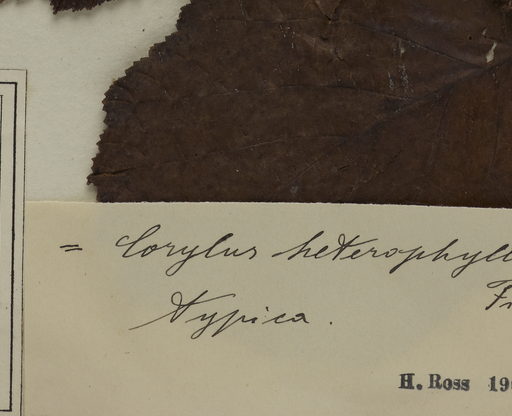 = Corylus heterophyll
Fi
typica.
H. Ross 19